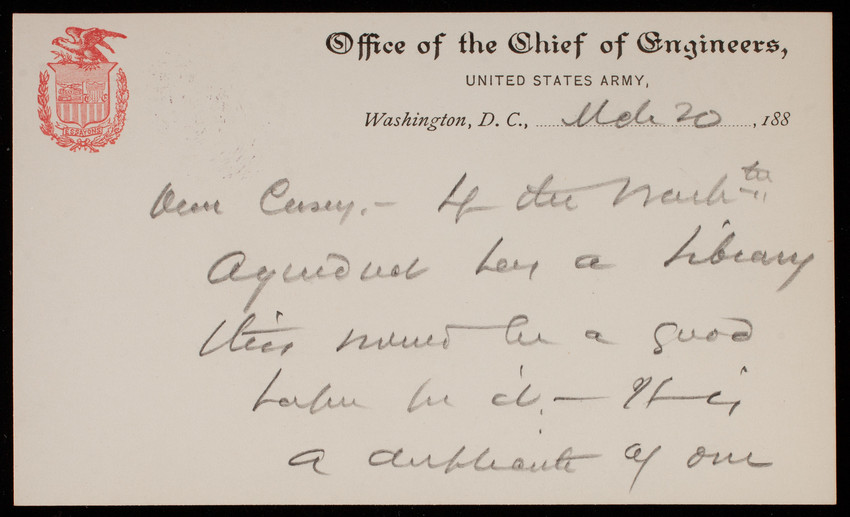 ESSAYONS
Office of the Chief of Engineers,
UNITED STATES ARMY,
Washington, D. C., Mch 20, 188
Dear Casey, - If the Wash-tn
Aqueduct has a Library
this would be a good
paper for it. - It is
a duplicate of one